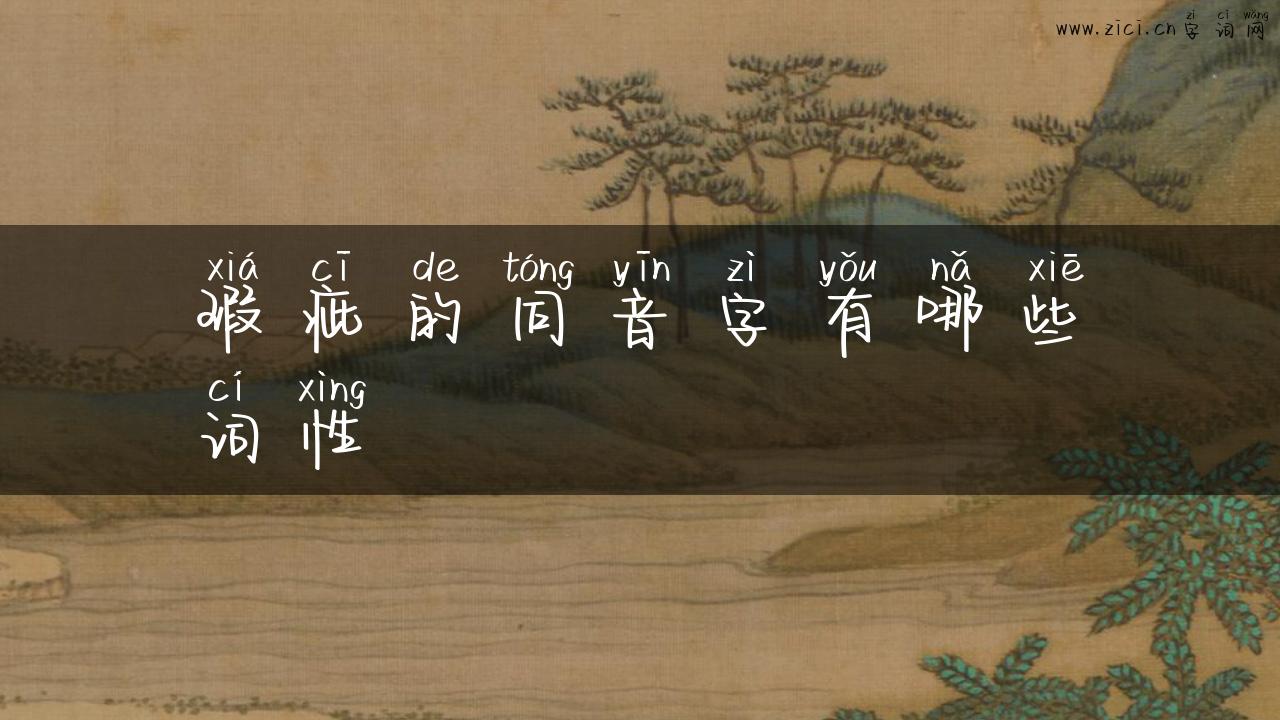 zì cí wǎng
www.zici.cn 字 词 网
xiá cī de tóng yīn zì yǒu nǎ xiē
瑕 疵 的 同 音 字 有 哪 些
cí xìng
词 性